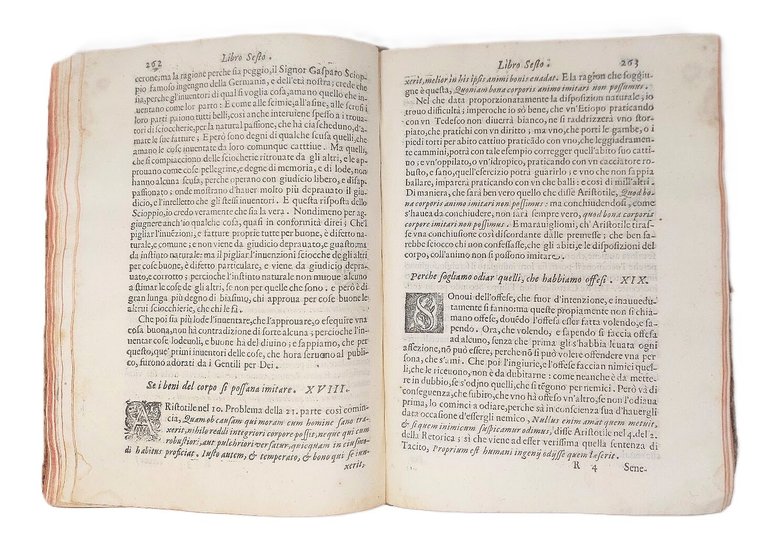 262
Libro Sesto.
cerone; ma la ragione perche sia peggio, il Signor Gasparo Sciop-
pio famoso ingegno della Germania, e dell'età nostra; crede che
sia, perche gl'inuentori di qual si voglia cosa, amano quello che in-
uentano come lor parto: E come alle scimie, all'asine, alle scrofi i
loro parti paiono tutti belli, cosi anche interuiene spesso a i trouа-
tori di sciocherie, per la natural passione, che hà ciascheduno, d'a-
mare le sue fatture; E però sono degni di qualche scusa quelli, che
amano le cose inuentate da loro comunque cattiue. Ma quelli,
che si compiacciono delle sciocherie ritrouate da gli altri, e le ap-
prouano come cose pellegrine, e degne di memoria, e di lode, non
hanno alcuna scusa, perche operano con giudicio libero, e disap-
passionato; onde mostrano d'hauer molto più deprauato il giudi-
cio, e l'intelletto che gli stessi inuentori. E questa risposta dello
Scioppio, io credo veramente che sia la vera. Nondimeno per ag-
giugnere anch'io qualche cosa, quasi in conformità direi; Che'l
pigliar l'inuenzioni, e fatture proprie tutte per buone, è difetto na-
turale, e comune; e non viene da giudicio deprauato, e guasto: ma
da instinto naturale: ma il pigliar l'inuenzioni sciocche de gli altri
per cose buone, è difetto particulare, e viene da giudicio, e da di-
scorso deprauato, perche l'instinto naturale non muoue alcuno
a stimar le cose de gli altri, se non per quelle che sono. e però è di
gran lunga più degno di biasimo, chi approua per cose buone le
altrui sciocherie, che chi le fà.
Che poi sia più lode l'inuentare, che l'approuare, o esequire vna
cosa buona, non hà contradizione di sorte alcuna; percioche l'in-
uentar cose lodeuoli, e buone hà del diuino; e sappiamo, che per
questo, que' primi inuentori delle cose, che hora seruono al publi-
co, furono adorati da i Gentili per Dei.
Se i beni del corpo si possano imitare. XVIII.
ARistotile nel 10. Problema della 21. parte cosi comin-
cia, Quam ob causam qui moram cum homine sano tra-
xerit, nihilo reddi integriori corpore possit, neque qui cum
robustiori, aut pulchriori versatur, quicquam in eiusmo-
di habitus proficiat. Iusto autem, & temperato, & bono qui se iun-
xerit,
Libro Sesto.
263
xerit, melior in his ipsis animi bonis euadat. E la ragion che soggiu-
gne è questa, Quoniam bona corporis animo imitari non possumus.
Nel che data proporzionatamente la disposizion naturale; io
difendo tutto il contrario: imperoche io sò bene, che vn Etiopo praticando
con vn Tedesco non diuerrà bianco, ne si raddrizzerà vno stor-
piato, che pratichi con vn diritto; ma vno, che porti le gambe, o i
piedi torti per abito cattiuo praticando con vno, che leggiadramen-
te cammini, potrà con tale esempio corregger quell'abito suo catti-
uo; e vn oppilato, o vn'idropico, praticando con vn cacciatore ro-
busto, e sano, quell'esercizio potrà guarirlo; e vno che non sappia
ballare, imparerà praticando con vn che balli: e cosi di mill'altri.
Di maniera, che sarà ben vero quello che disse Aristotile, Quod bo-
na corporis animo imitari non possimus: ma conchiudendosi, come
s'haueа da conchiudere, non sarà sempre vero, quod bona corporis
corpore imitari non possimus. E marauigliomi, ch'Aristotile tiras-
se vna conchiusione cosi discordante dalle premesse; che ben sa-
rebbe sciocco chi non confessasse, che gli abiti, e le disposizioni del
corpo, coll'animo non si possono imitare.
Perche sogliamo odiar quelli, che habbiamo offesi. XIX.
SOnoui dell'offese, che fuor d'intenzione, e inauuedu-
tamente si fanno: ma queste propiamente non si chia-
mano offese, douendo l'offesa esser fatta volendo, e sa-
pendo. Ora, che volendo, e sapendo si faccia offesa
ad alcuno, senza che prima gli s'habbia leuata ogni
affezione, nō può essere, perche nō si può volere offendere vna per-
sona, che s'ami. Che poi l'ingiurie, e l'offese faccian nimici quel-
li, che le riceuono, non è da dubitarne: come neanche da mette-
re in dubbio, se s'odino quelli, che si tēgono per nemici. Però và di
conseguenza, che subito, che vno hà offeso vn'altro, se non l'odiaua
prima, lo cominci a odiare, perche sà in conscienza sua d'hauergli
data occasione d'essergli nemico, Nullus enim amat quem metuit,
& si quem inimicum suspicamur odimus, disse Aristotile nel 4. del 2.
della Retorica; si che viene ad esser verissima quella sentenza di
Tacito, Proprium est humani ingenÿ odisse quem læserit.
R 4
Sene-